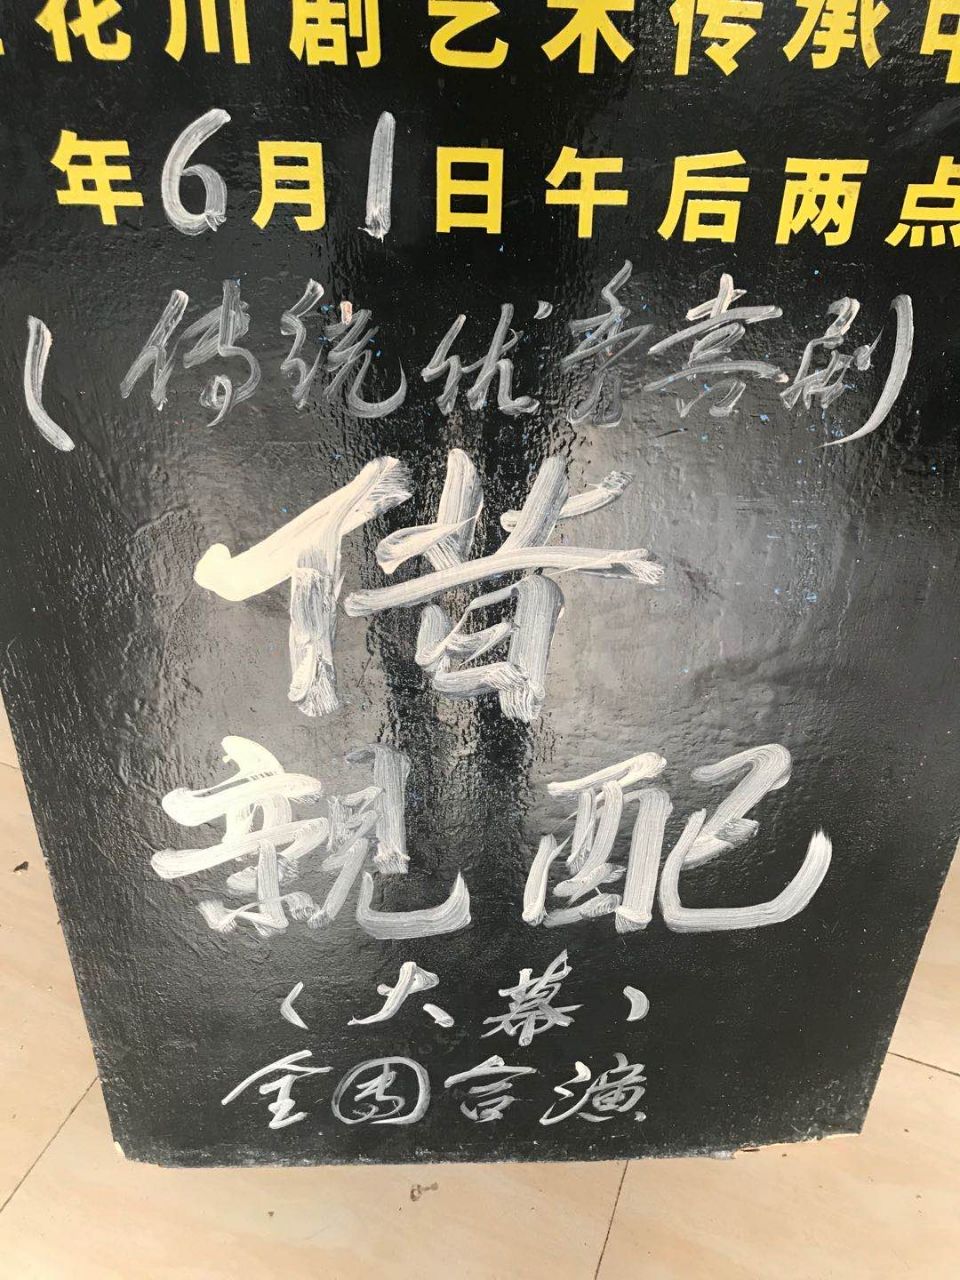 花川剧艺术传承中
年6月1日午后两点
(传统优秀喜剧)
借
親配
(大幕)
全团合演